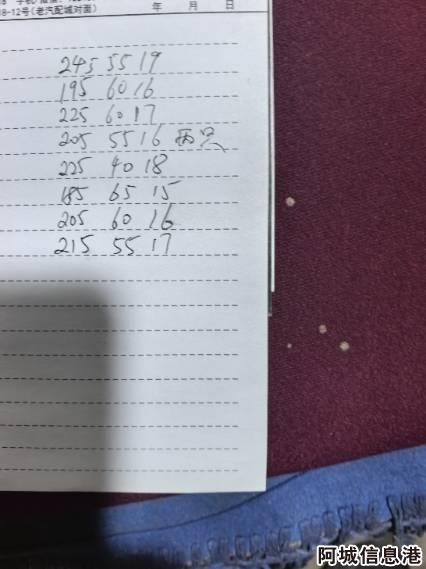 18-12号(老汽配城对面)
年 月 日
245 55 19
195 60 16
225 60 17
205 55 16 两只
225 40 18
185 65 15
205 60 16
215 55 17
阿城信息港